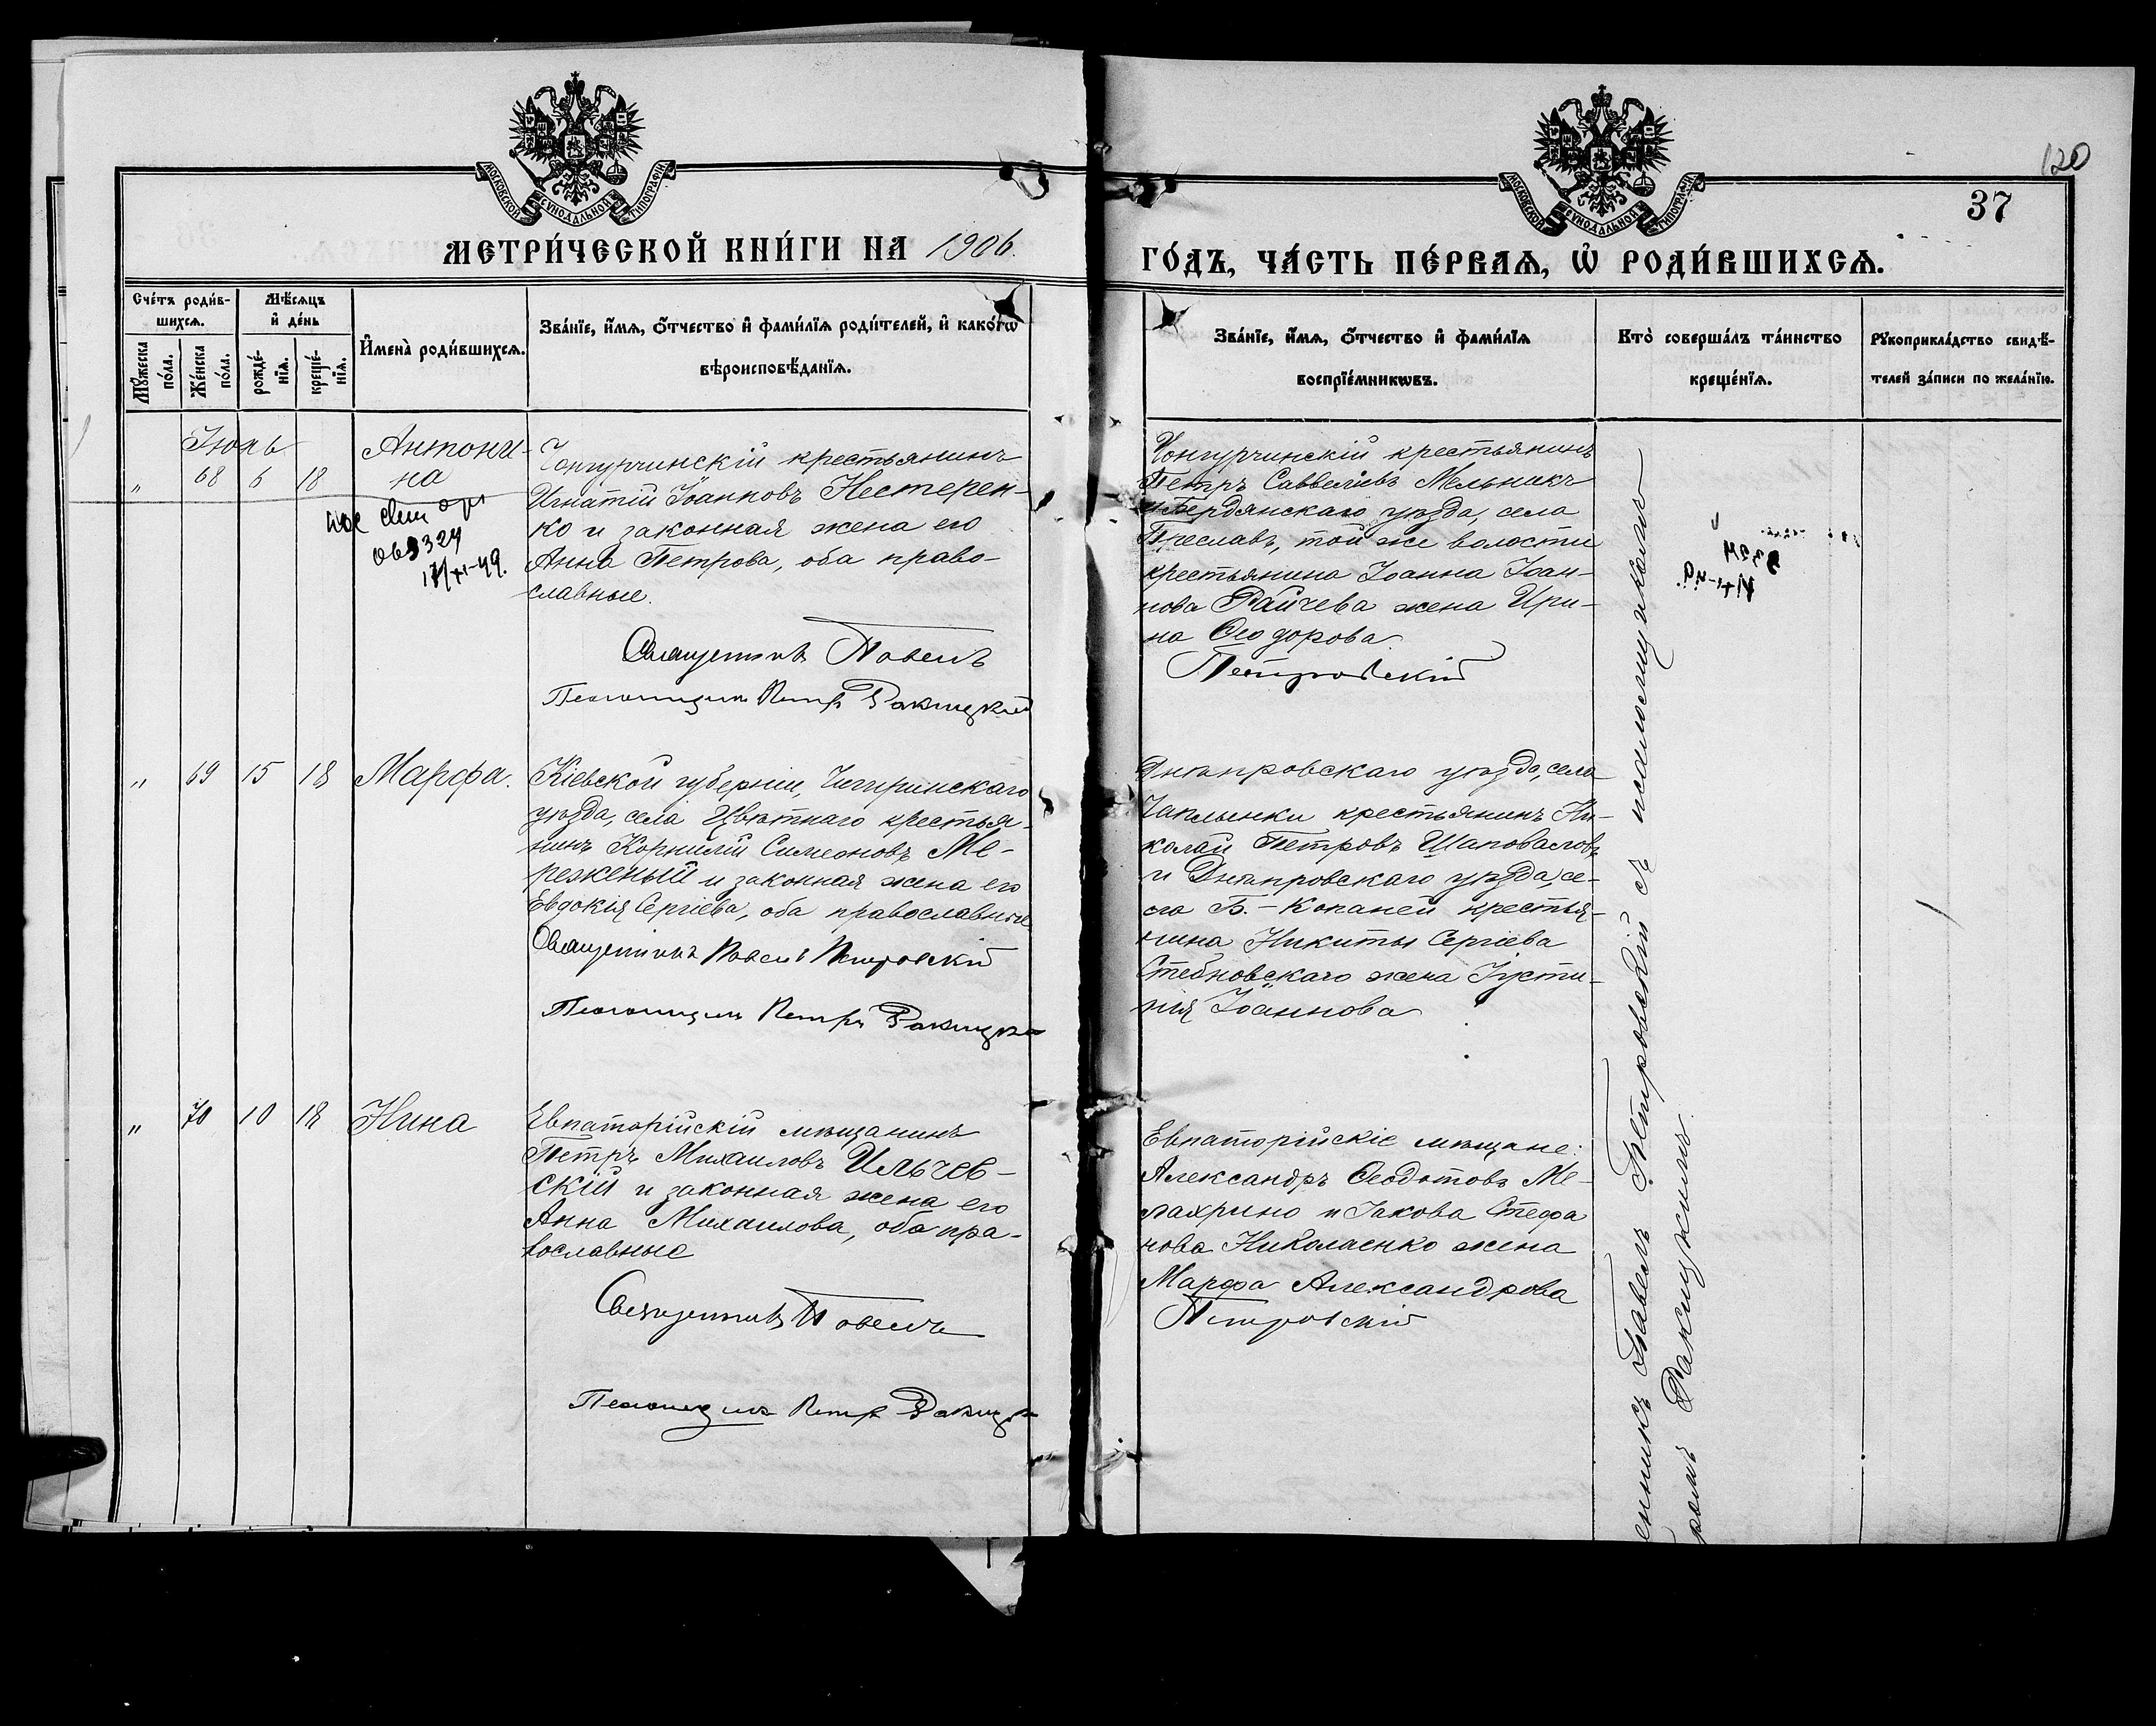 120
37
МОСКОВСКОЙ СѴНОДАЛЬНОЙ ТИПОГРАФІИ
МОСКОВСКОЙ СѴНОДАЛЬНОЙ ТИПОГРАФІИ
МЕТРИ́ЧЕСКОЙ КНИ́ГИ НА 1906.
ГО́ДЪ, ЧА́СТЬ ПЕ́РВАѦ, Ѡ҆ РОДИ́ВШИХСѦ.
Сче́тъ роди́в-
шихсѧ.
Мѣ́сѧцъ
и҆ де́нь
Мꙋ́жеска
по́ла.
Же́нска
по́ла.
рожде́-
нїѧ.
креще́-
нїѧ.
И҆мена̀ роди́вшихсѧ.
Зва́нїе, и҆́мѧ, ѻ҆́тчество и҆ фами́лїѧ роди́телей, и҆ како́гѡ
вѣроисповѣ́данїѧ.
Зва́нїе, и҆́мѧ, ѻ҆́тчество и҆ фами́лїѧ
воспрїе́мникѡвъ.
Кто̀ соверша́лъ та́инство
креще́нїѧ.
Рꙋкоприкла́дство свидѣ́-
телей за́писи по жела́нїю.
Іюль
„ 68 6 18
Антони-
на
17/XI-49.
Чонгурчинскій крестьянинъ
Игнатій Іоанновъ Нестерен-
ко и законная жена его
Анна Петрова, оба право-
славные.
Священникъ Павелъ
Псаломщикъ Петръ Ракицкій
Чонгурчинскій крестьянинъ
Петръ Саввеліевъ Мельникъ
и Бердянскаго уѣзда, села
Преславъ, той же волости
крестьянина Іоанна Іоан-
нова Райчева жена Ири-
на Ѳеодорова
Петровскій
„ 69 15 18 Марфа.
Кіевской губерніи, Чигиринскаго
уѣзда, села Цвѣтнаго крестья-
нинъ Корнилій Симеоновъ Ме-
реженый и законная жена его
Евдокія Сергіева, оба православные
Священникъ Павелъ Петровскій
Псаломщикъ Петръ Ракицкій
Днѣпровскаго уѣзда, села
Чаплынки крестьянинъ Ни-
колай Петровъ Шаповаловъ
и Днѣпровскаго уѣзда, се-
ла Б.-Копаней крестья-
нина Никиты Сергіева
Стебновскаго жена Іусти-
нія Іоаннова
„ 70 10 18 Нина
Евпаторійскій мѣщанинъ
Петръ Михаиловъ Ильчев-
скій и законная жена его
Анна Михаилова, оба пра-
вославные
Священникъ Павелъ
Псаломщикъ Петръ Ракицкій
Евпаторійскіе мѣщане:
Александръ Ѳеодотовъ Ме-
лахрино и Іакова Стефа
нова Николаенко жена
Марфа Александрова
Петровскій
енникъ Павелъ Петровскій съ псаломщикомъ
ромъ Ракицкимъ